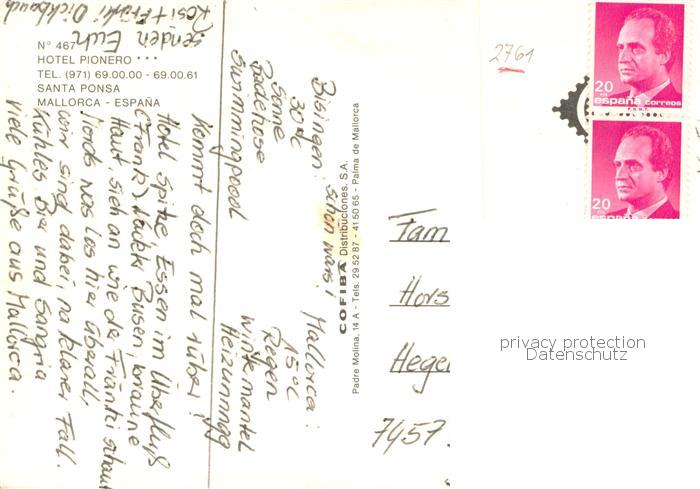 Nº 467
HOTEL PIONERO ***
TEL. (971) 69.00.00 - 69.00.61
SANTA PONSA
MALLORCA - ESPAÑA
Bisingen: schön wars!
30°C
Sonne
Badehose
Swimmingpool
Mallorca:
15°C
Regen
Wintermantel
Heizunngg
Kommt doch mal rüber!
Hotel Spitze Essen im Überfluß
(Frank) Busen, braune
Haut, sich an wie der Fränki schaut
nos los hier überall,
wir sind dabei, na klarer Fall.
Kühles Bier und Sangria
viele Grüße aus Mallorca.
senden Euch
Rosi + Fränki
COFIBA Distribuciones, S.A.
Padre Molina, 14 A - Tels. 29 52 87 - 41 50 65 - Palma de Mallorca
2761
20
españa correos
F.N.M.T.
20
españa correos
Fam
Hors
Hege
7457
privacy protection
Datenschutz